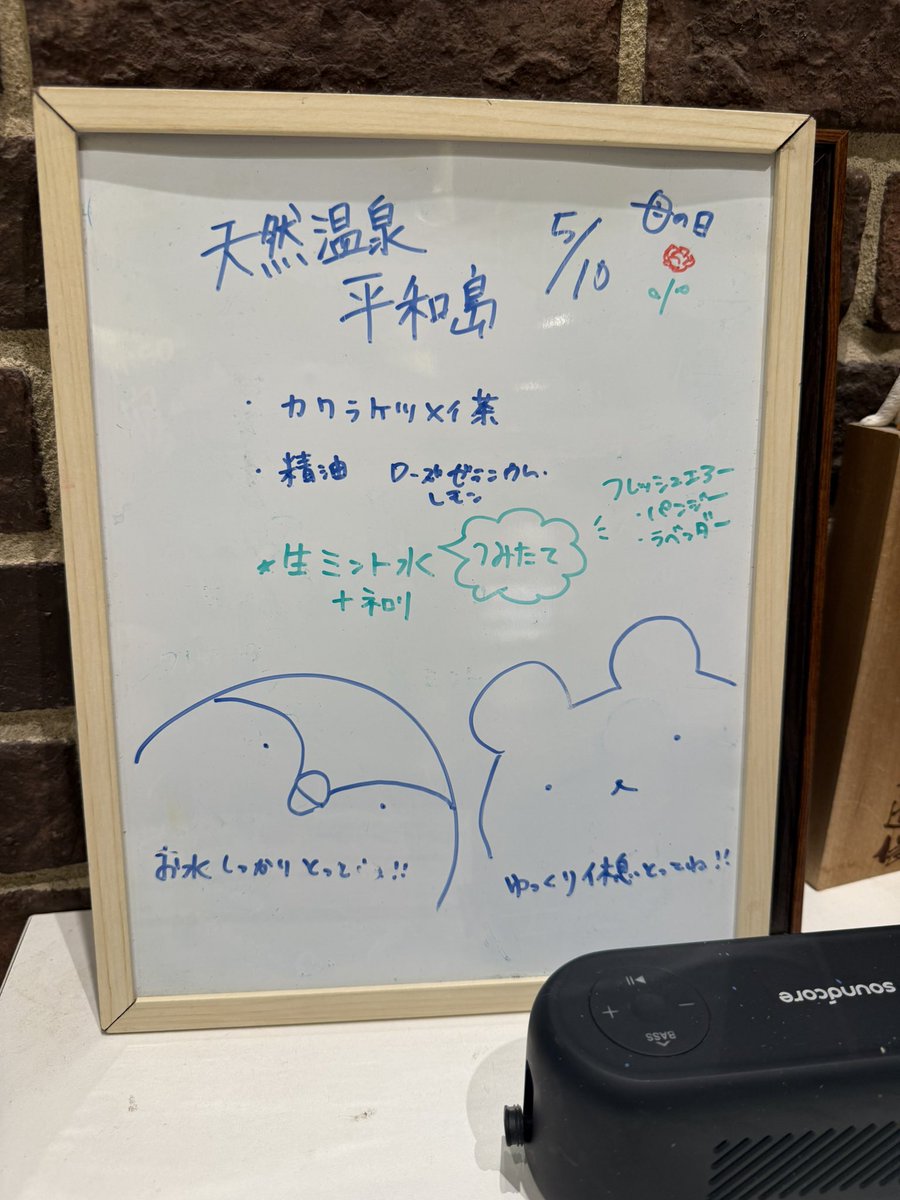 天然温泉
平和島
5/10
母の日
・カワラケツメイ茶
・精油 ローズゼラニウム・
レモン
*生ミント水
つみたて
+ネロリ
フレッシュエラー
・パンジー
・ラベンダー
お水しっかりとってね!!
ゆっくり休憩とってね!!
soundcore
BASS